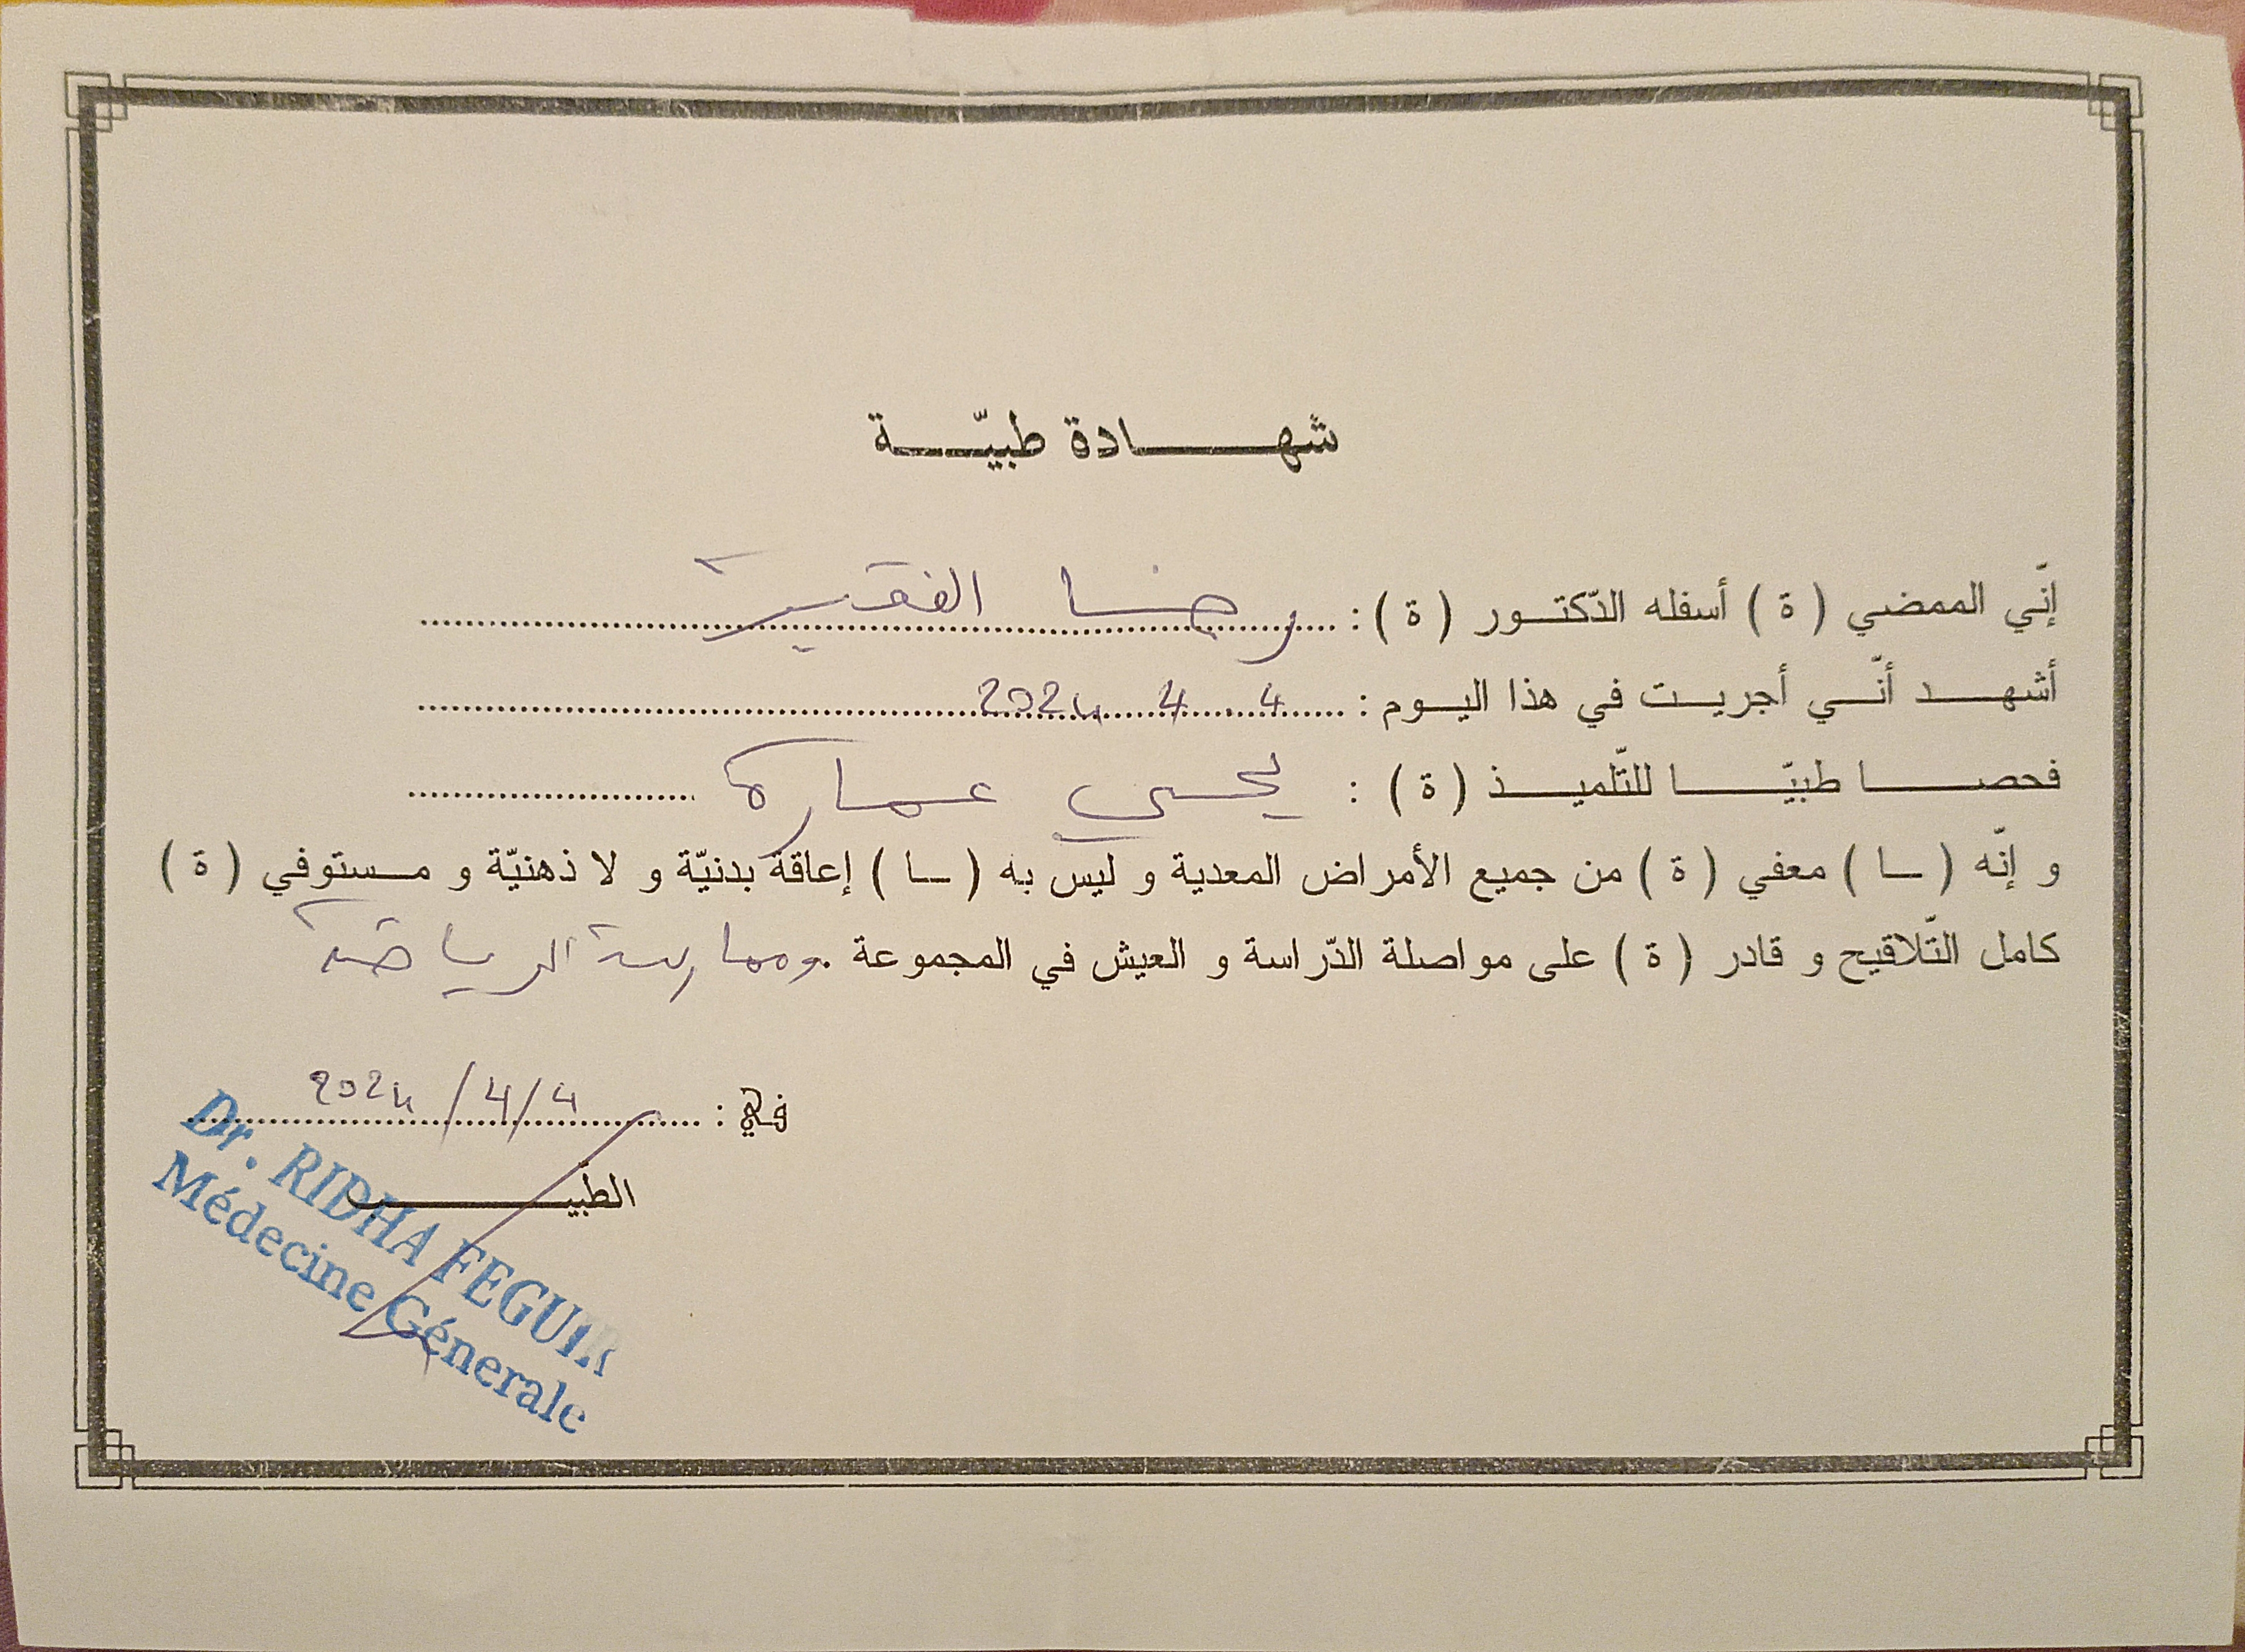 شهادة طبيّة
إنّي الممضي ( ة ) أسفله الدّكتور ( ة ) : رضا الفقير
أشهد أنّي أجريت في هذا اليوم : 4 4 2024
فحصا طبيّا للتّلميذ ( ة ) : يحيى عمارة
و إنّه ( ـا ) معفي ( ة ) من جميع الأمراض المعدية و ليس به ( ـا ) إعاقة بدنيّة و لا ذهنيّة و مستوفي ( ة )
كامل التّلاقيح و قادر ( ة ) على مواصلة الدّراسة و العيش في المجموعة . وممارسة الرياضة
في : 4/4/2024
الطبيب
Dr. RIDHA FEGUIR
Médecine Génerale